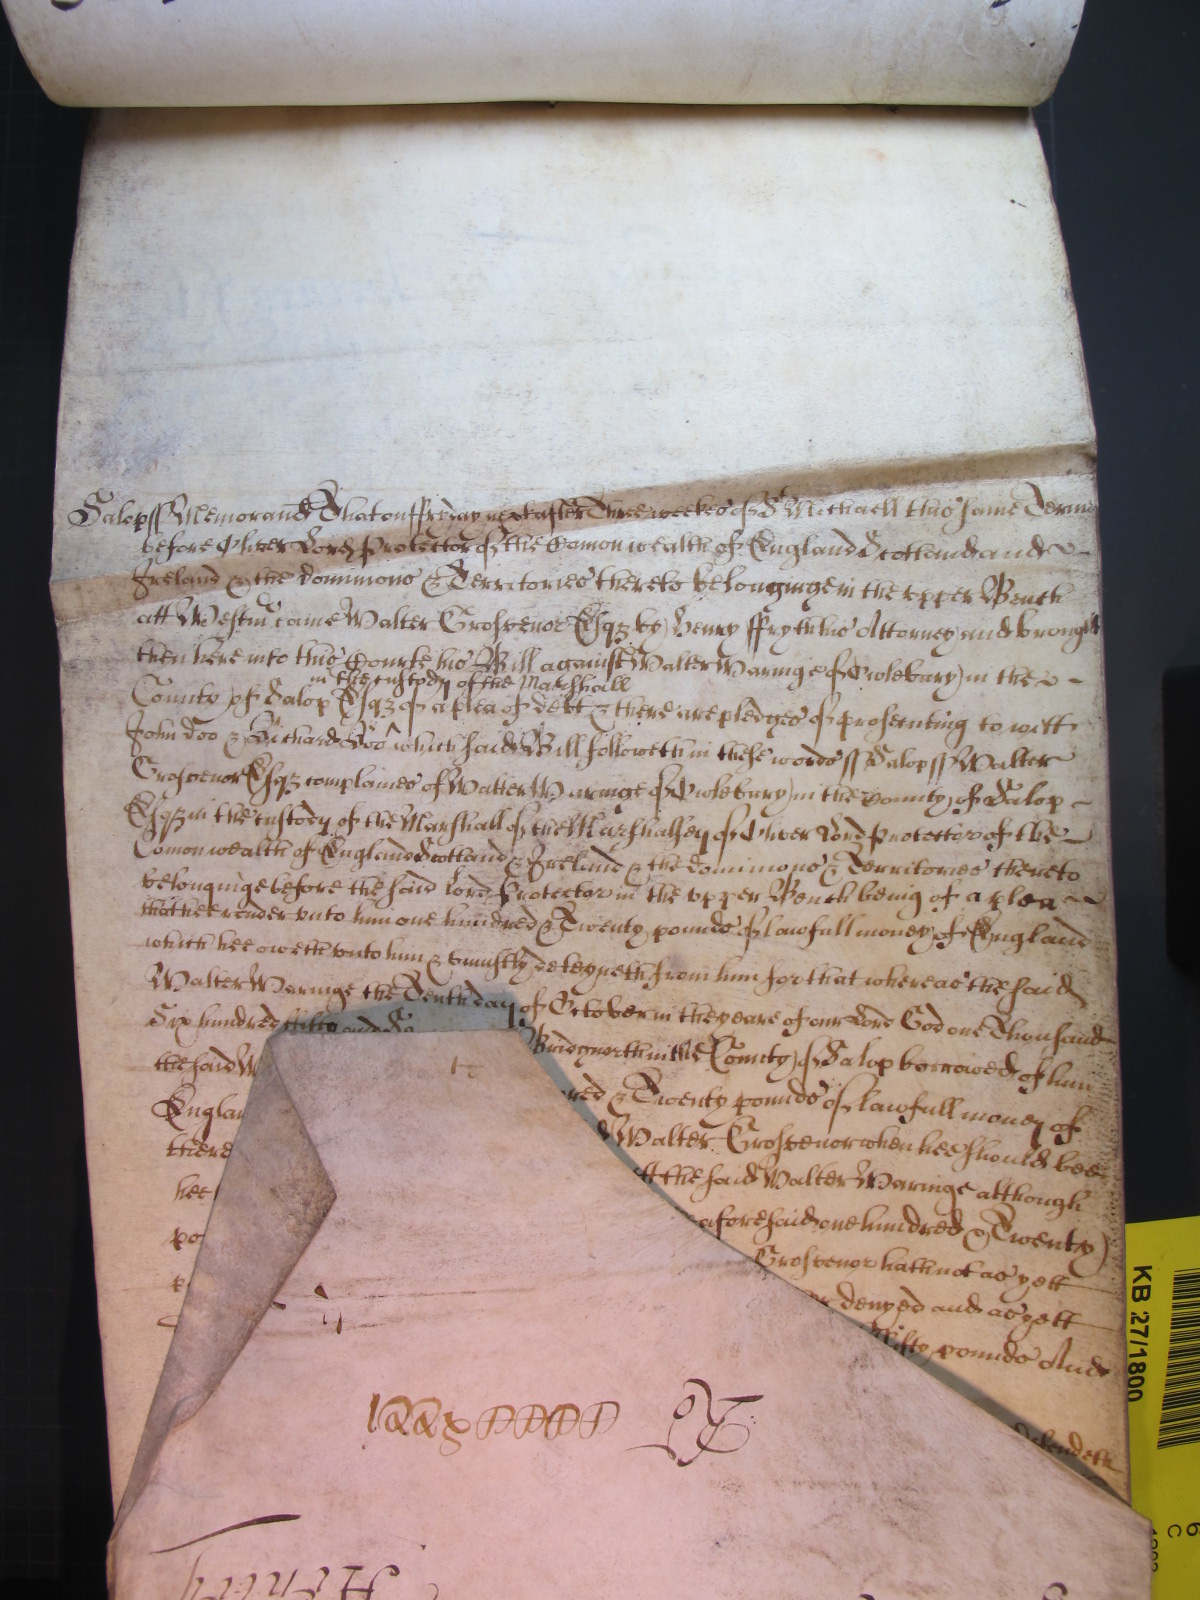 Salop ss Memorand That on ffryday next after Three weekes of St Michaell this same Terme
before Oliver Lord Protector of the Comon wealth of England Scotland and
Ireland & the dominions & Territories thereto belonginge in the upper Bench
att Westm came Walter Grosvenor Esqz by Henry ffryth his Attorney and brought
then here into this Courte his Bill against Walter Waringe of Owlebury in the
in the custody of the Marshall
County of Salop Esqz of a plea of debt & there are pledges of prosecuting to witt
John Doo & Richard Roo which said Bill followeth in these words ss Salop ss Walter
Grosvenor Esqz complaines of Walter Waringe of Owlebury in the County of Salop
Esqz in the custody of the Marshall of the Marshalsey of Oliver Lord Protector of the
Comon wealth of England Scotland & Ireland & the dominions & Territories thereto
belonginge before the said Lord Protector in the upper Bench being of a plea
that hee render unto him one hundred & Twenty pounds of lawfull money of England
which hee oweth unto him & uniustly deteyneth from him for that whereas the said
Walter Waringe the Tenth day of October in the yeare of our Lord God one Thousand
Six hundred ffifty and Bridgnorth in the County of Salop borrowed of him
the said W
Englan red & Twenty pounds of lawfull money of
there d Walter Grosvenor when hee should bee
hee tt the said Walter Waringe although
po aforesaid one hundred & Twenty
p Grosvenor hath not as yett
denyed and as yett
ffifty pounds And
defendeth
Ro
KB 27/1800
6
C